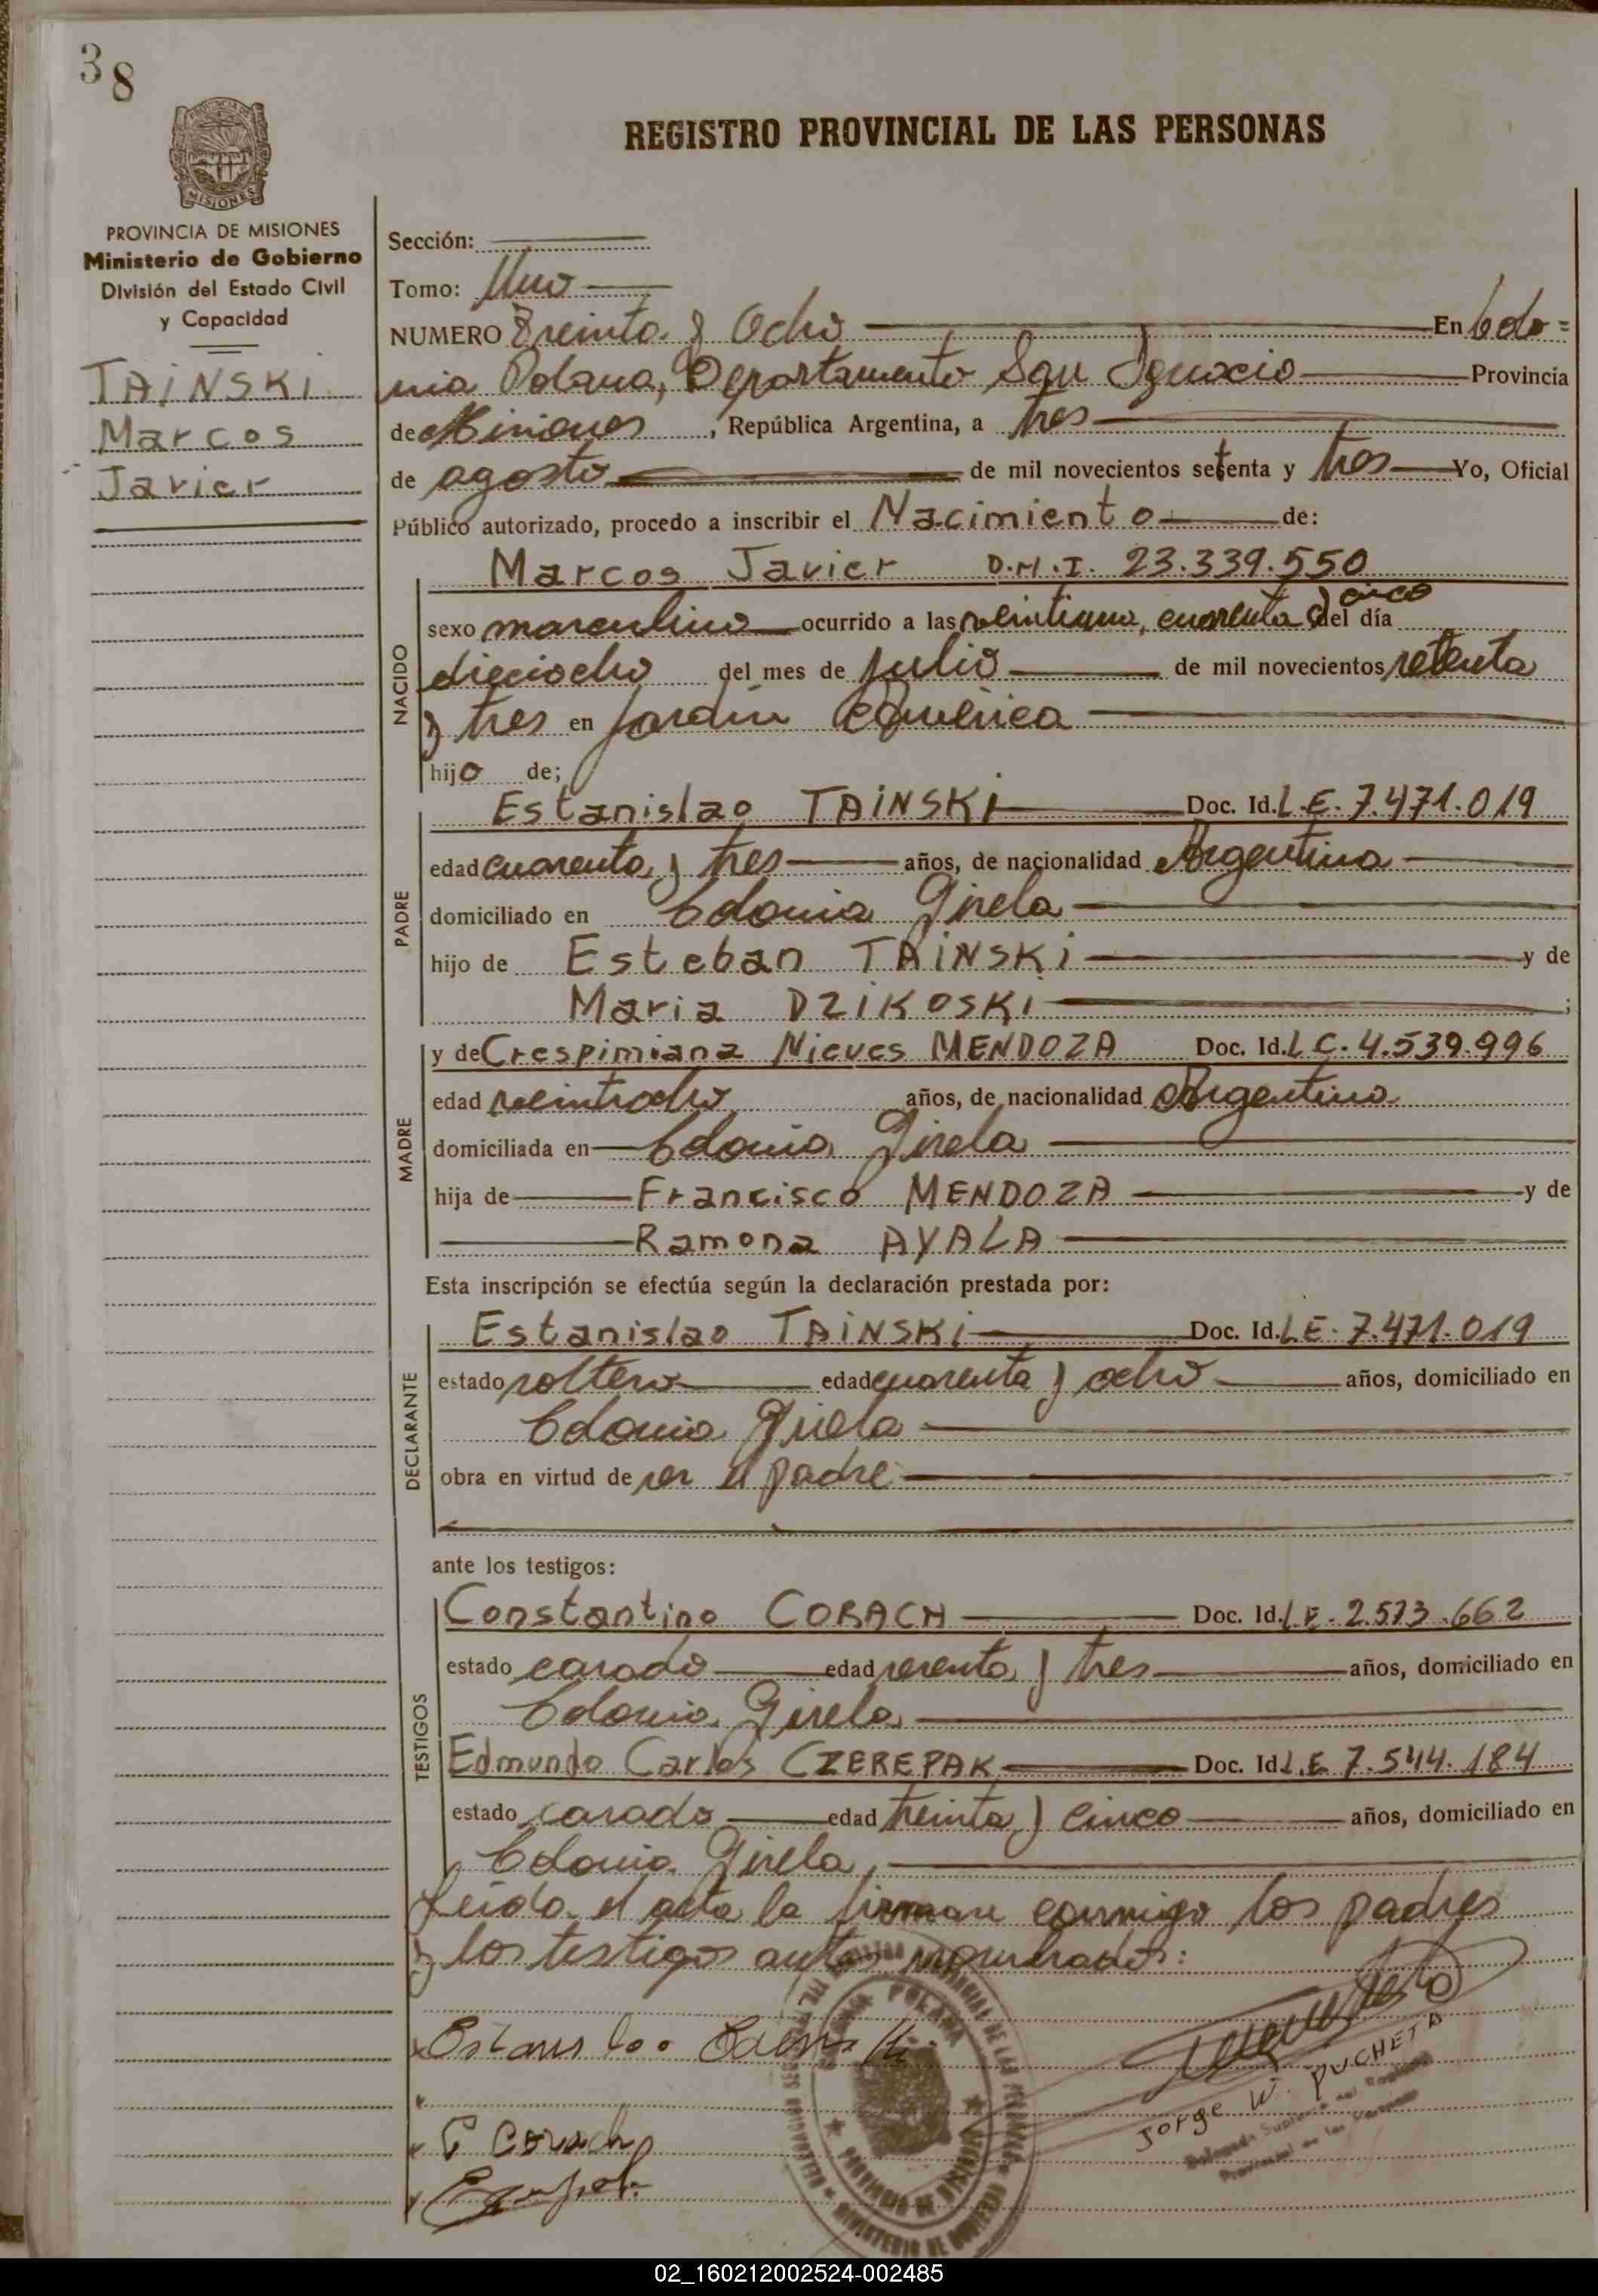 38
REGISTRO PROVINCIAL DE LAS PERSONAS
MISIONES
PROVINCIA DE MISIONES
Ministerio de Gobierno
División del Estado Civil
y Capacidad
TAINSKI
Marcos
Javier
Sección:
Tomo: Uno
NUMERO Treinta y Ocho En Colo=
nia Polana, Departamento San Ignacio Provincia
de Misiones, República Argentina, a tres
de agosto de mil novecientos setenta y tres Yo, Oficial
Público autorizado, procedo a inscribir el Nacimiento de:
Marcos Javier D.N.I. 23.339.550
NACIDO
sexo masculino ocurrido a las veintiuna, cuarenta y cinco del día
dieciocho del mes de julio de mil novecientos setenta
y tres en Jardín América
hijo de;
PADRE
Estanislao TAINSKI Doc. Id. L.E. 7.471.019
edad cuarenta y tres años, de nacionalidad Argentina
domiciliado en Colonia Gisela
hijo de Esteban TAINSKI y de
Maria DZIKOSKI ;
MADRE
y de Crespimiana Nieves MENDOZA Doc. Id. L C. 4.539.996
edad veintiocho años, de nacionalidad Argentina
domiciliada en Colonia Gisela
hija de Francisco MENDOZA y de
Ramona AYALA
Esta inscripción se efectúa según la declaración prestada por:
DECLARANTE
Estanislao TAINSKI Doc. Id. L E. 7.471.019
estado soltero edad cuarenta y ocho años, domiciliado en
Colonia Gisela
obra en virtud de ser el padre
ante los testigos:
TESTIGOS
Constantino CORACH Doc. Id. L.E. 2.573.662
estado casado edad sesenta y tres años, domiciliado en
Colonia Gisela
Edmundo Carlos CZEREPAK Doc. Id. L.E. 7.544.184
estado casado edad treinta y cinco años, domiciliado en
Colonia Gisela,
Leída el acta la firman conmigo los padres
y los testigos antes nombrados:
Estanislao Tainski
C Corach
Jorge W. PUCHETA
02_160212002524-002485